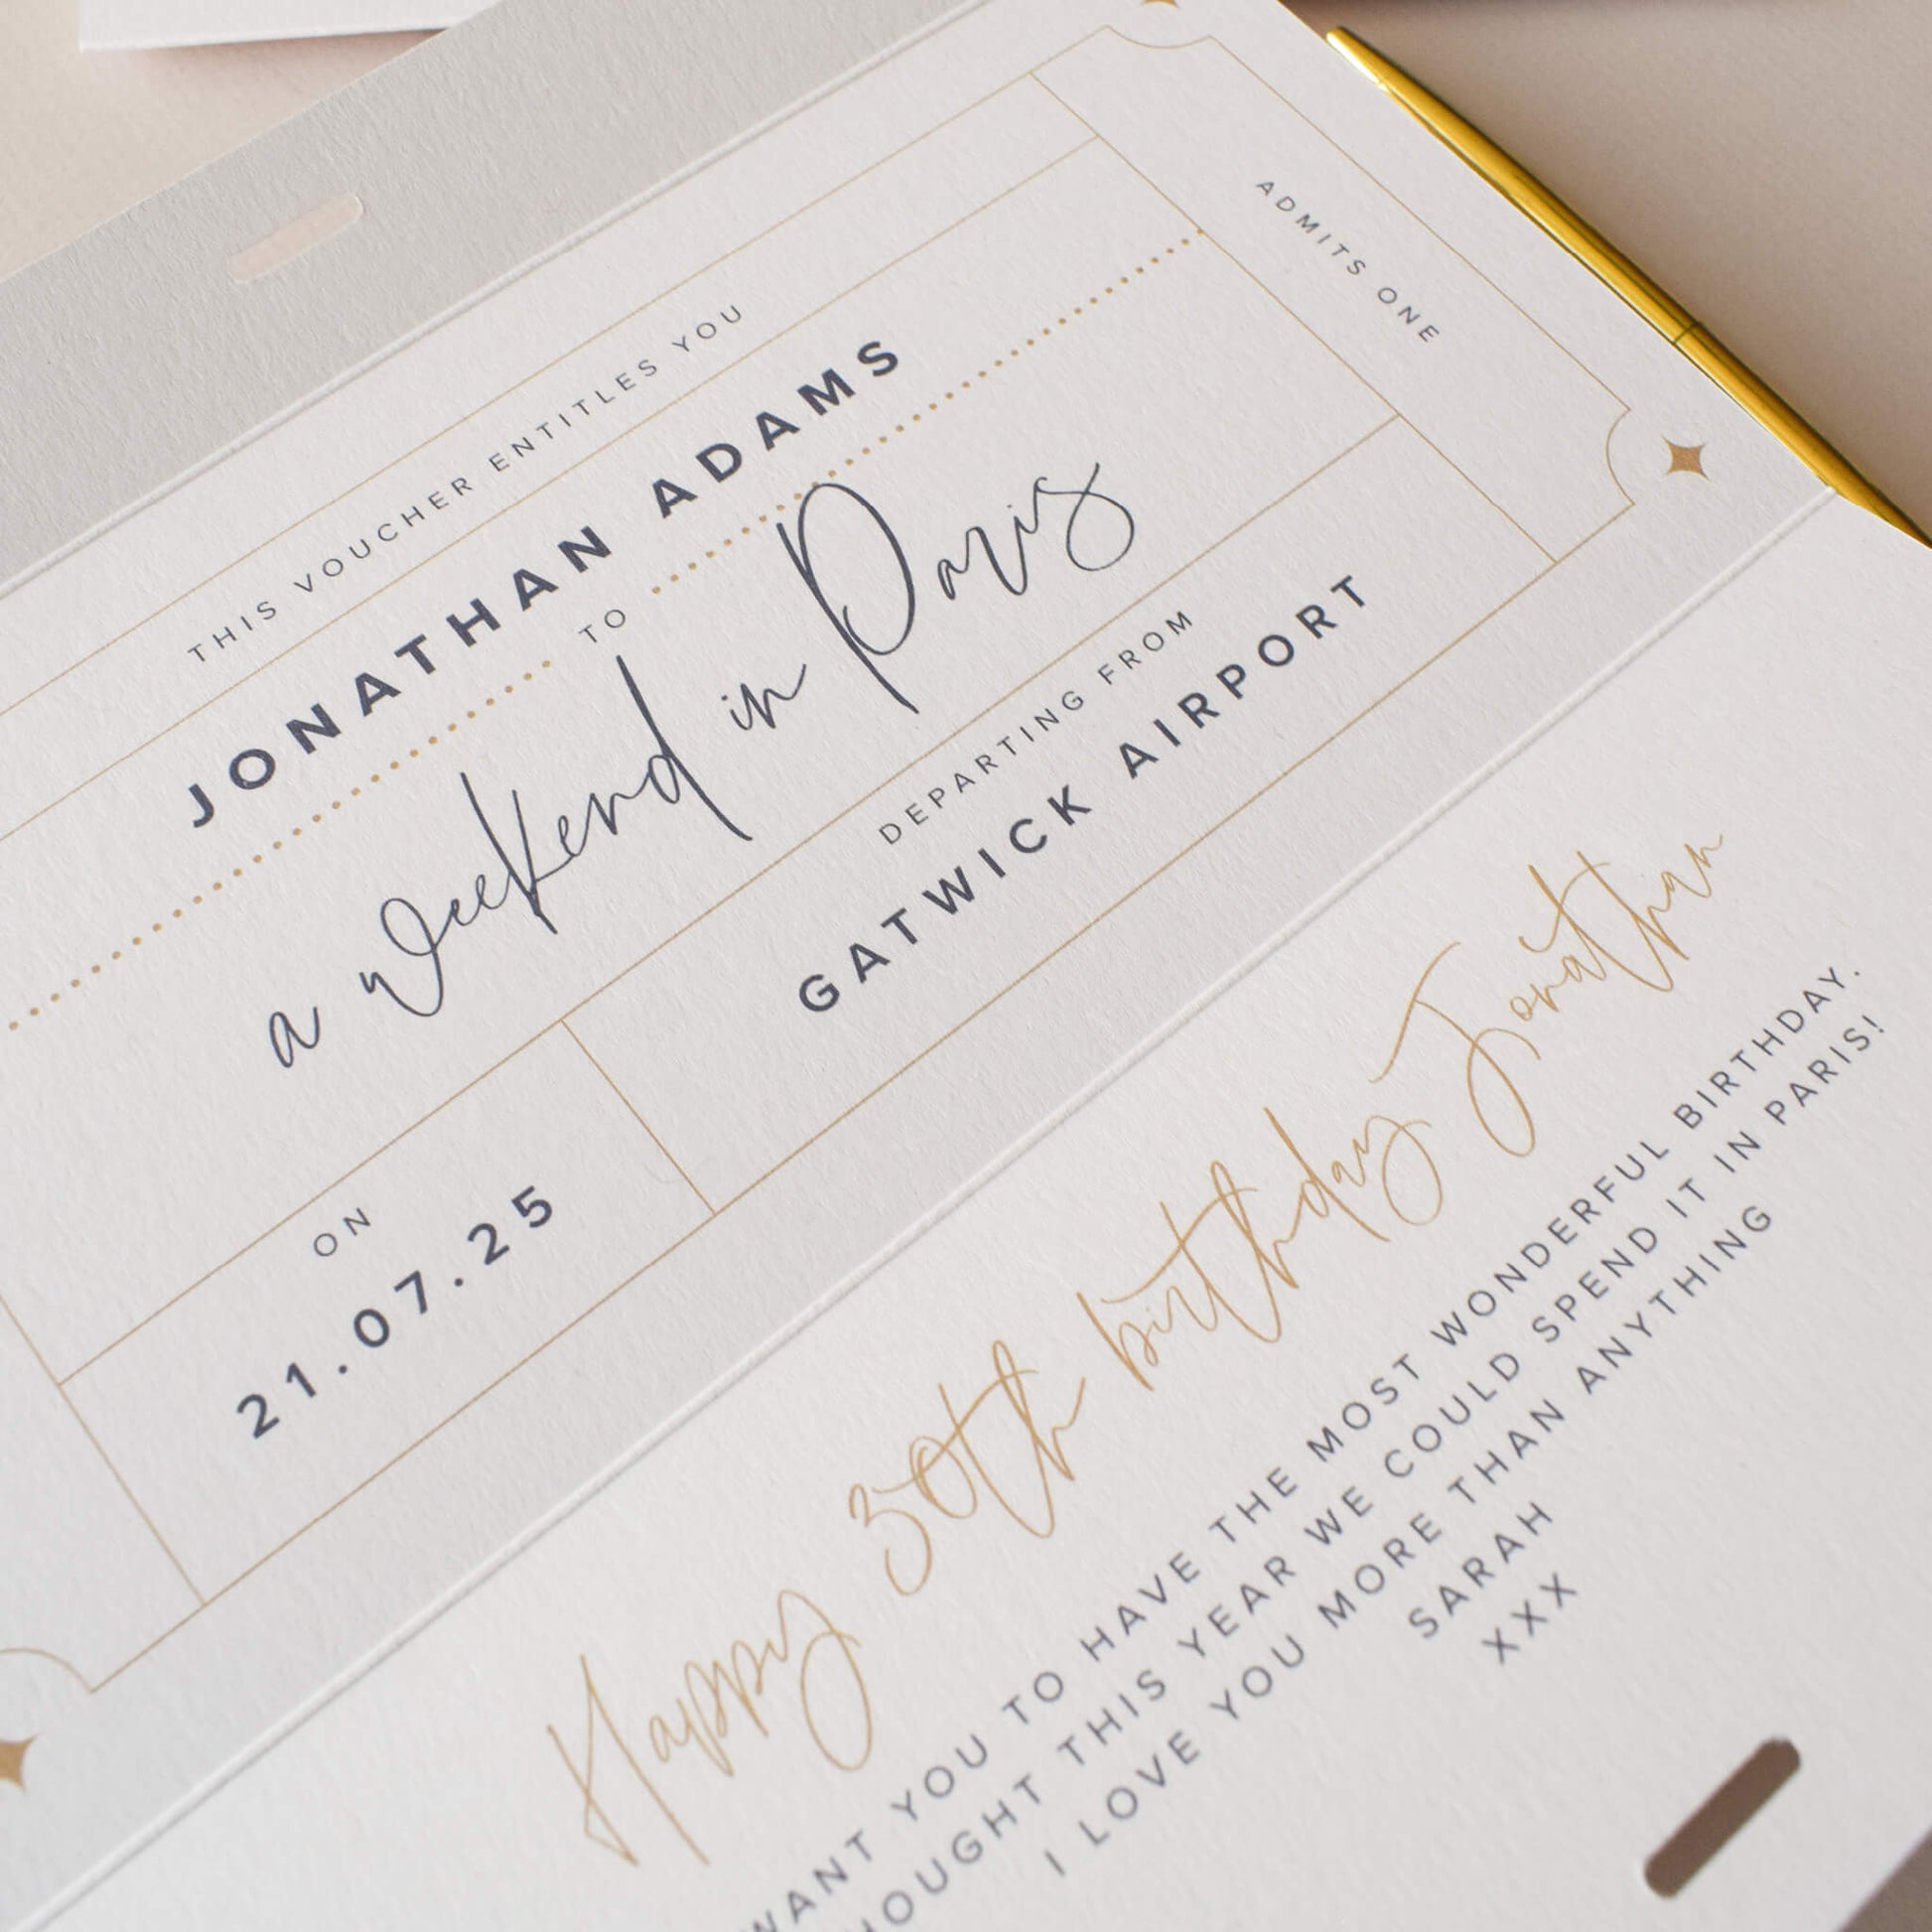 THIS VOUCHER ENTITLES YOU
JONATHAN ADAMS
TO
a weekend in Paris
ON
21.07.25
DEPARTING FROM
GATWICK AIRPORT
ADMITS ONE
Happy 30th birthday Jonathan
WANT YOU TO HAVE THE MOST WONDERFUL BIRTHDAY.
THIS YEAR WE COULD SPEND IT IN PARIS!
I LOVE YOU MORE THAN ANYTHING
SARAH
XXX